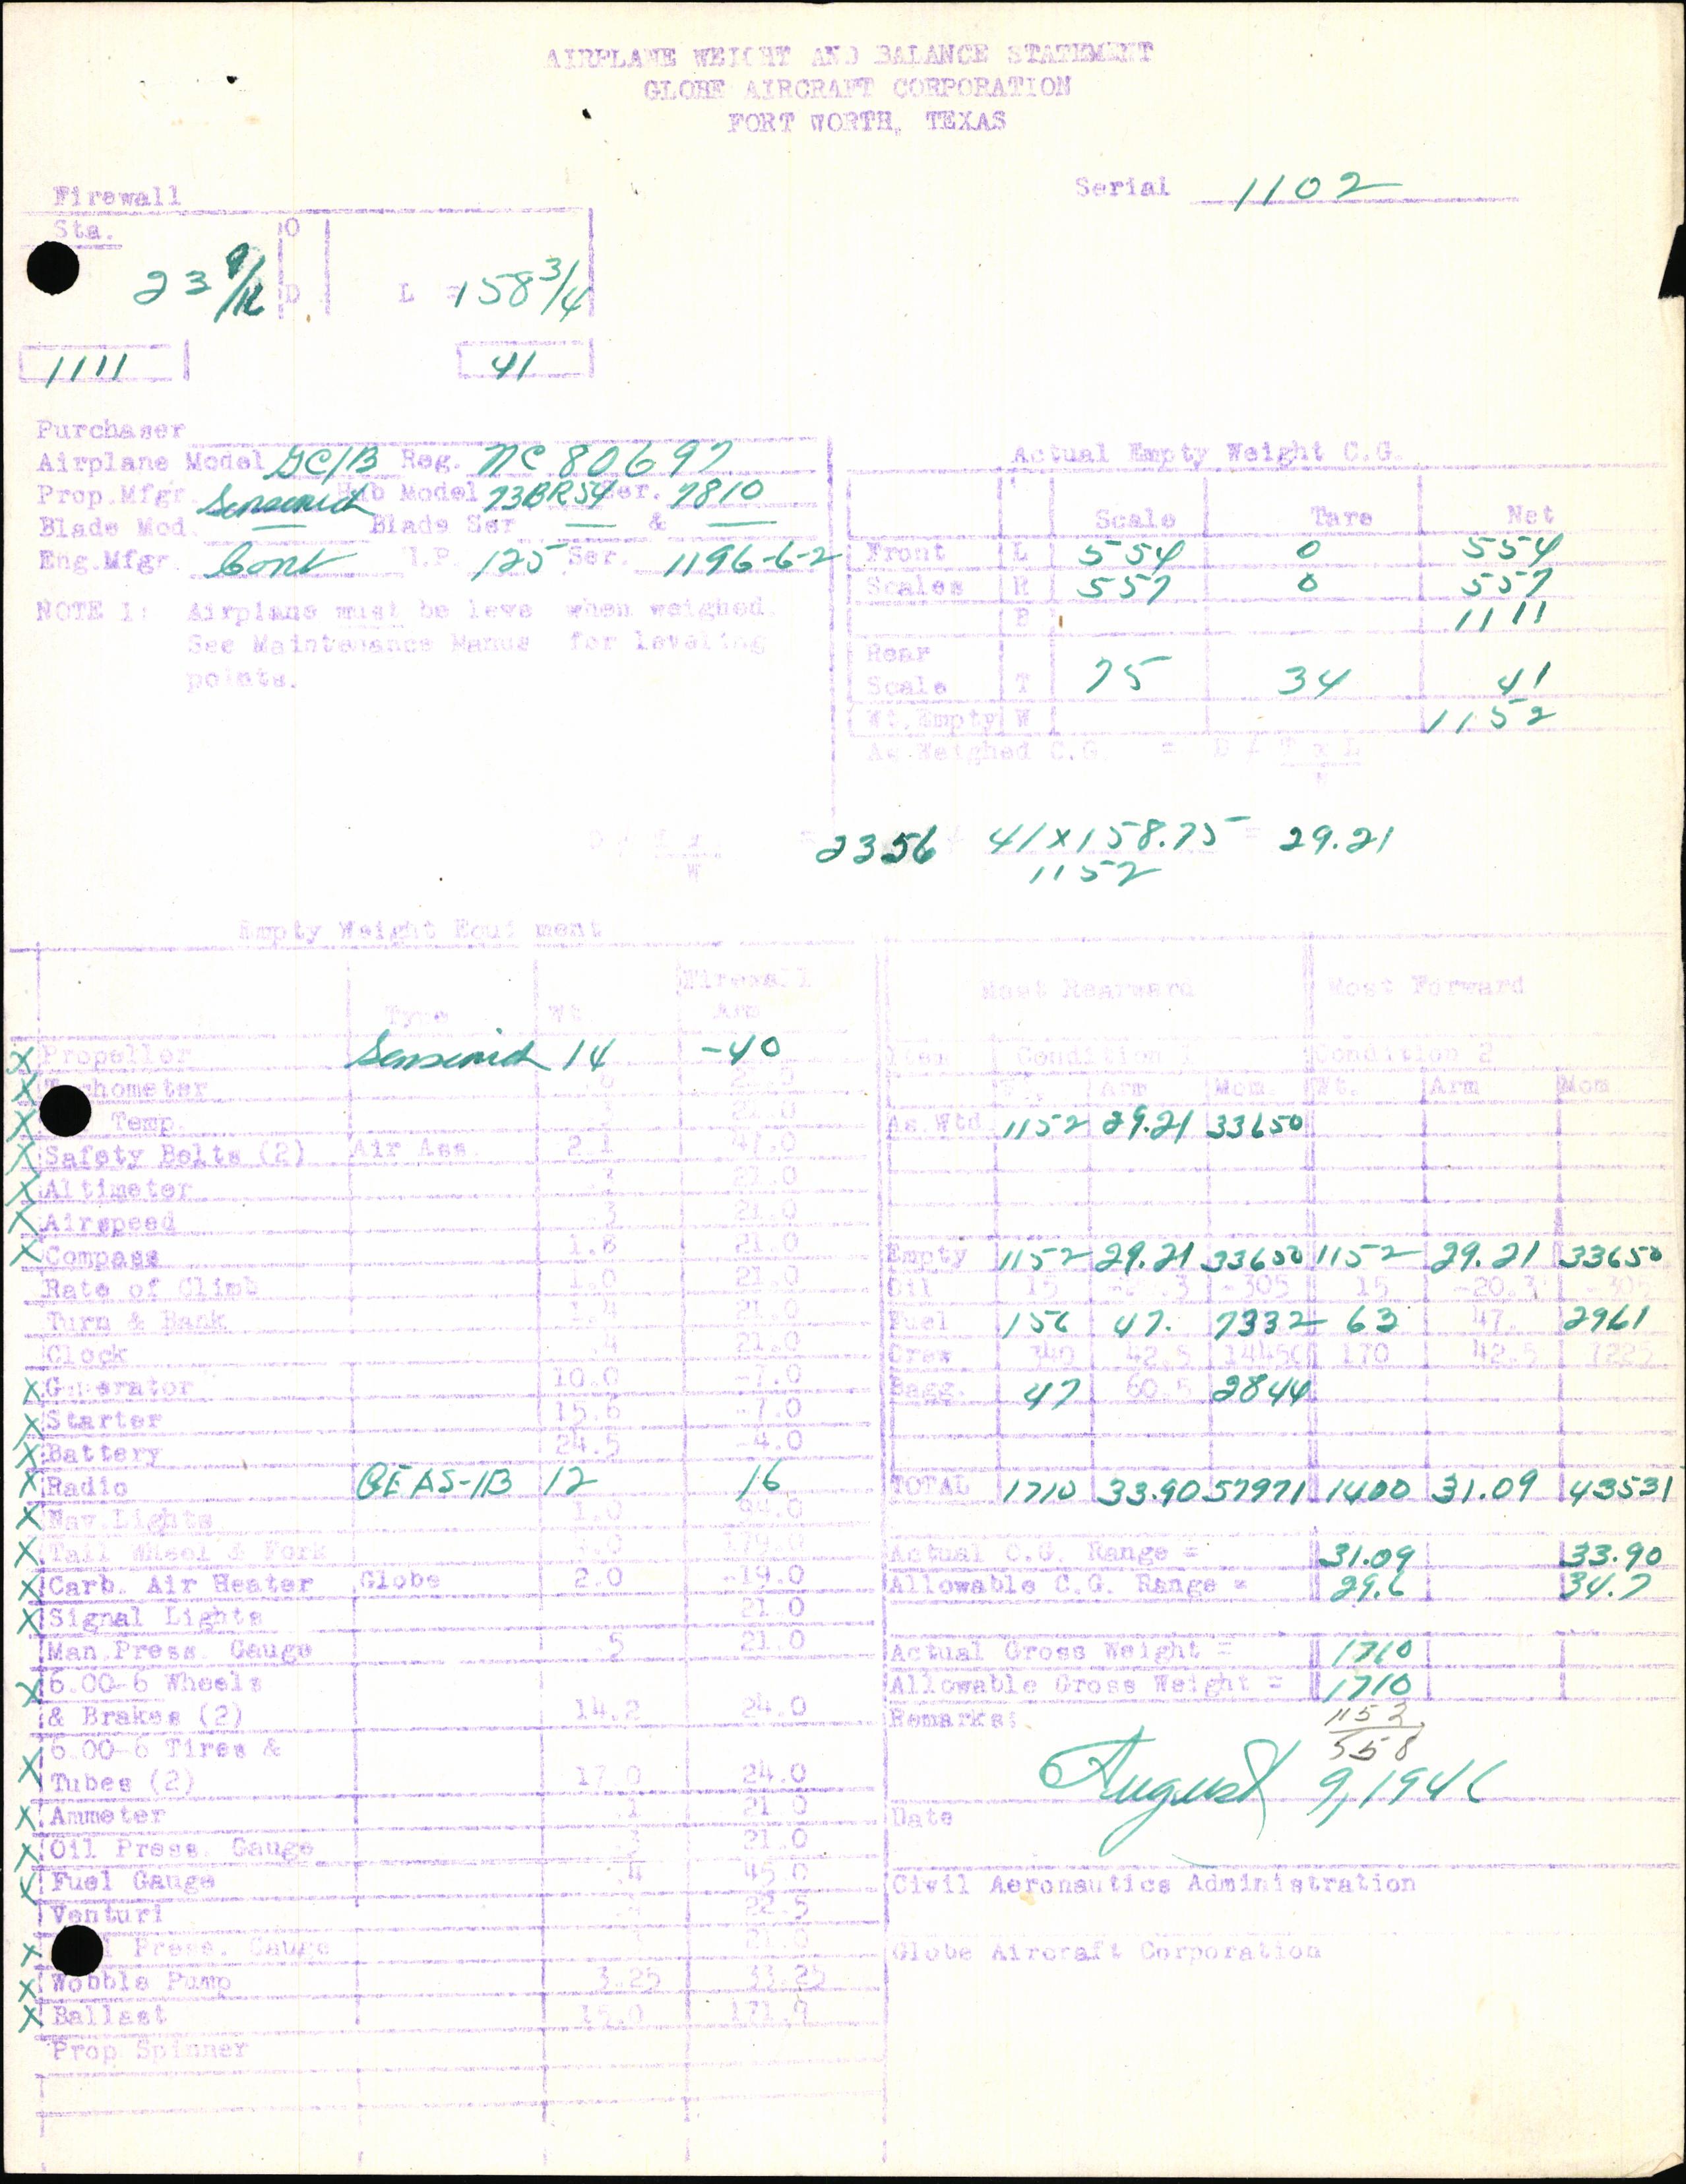 AIRPLANE WEIGHT AND BALANCE STATEMENT
GLOBE AIRCRAFT CORPORATION
FORT WORTH, TEXAS
Serial 1102
Firewall
Sta. O
23 9/16 D L = 158 3/4
1111 41
Purchaser
Airplane Model GC1B Reg. NC 80697
Prop.Mfgr. Sensenich Hub Model 73BR54 Ser. 7810
Blade Mod. — Blade Ser — & —
Eng.Mfgr. Cont H.P. 125 Ser. 1196-6-2
NOTE 1: Airplane must be leve when weighed.
See Maintenance Manua for leveling
points.
Actual Empty Weight C.G.
Scale Tare Net
Front L 554 0 554
Scales R 557 0 557
1111
Rear
Scale T 75 34 41
Wt.Empty W 1152
As Weighed C.G. = D / T x L
W
2356 41x158.75 = 29.21
1152
Empty Weight Equi ment
Type Wt. Firewall Arm
X Propeller Sensenich 14 -40
X Tachometer
X Temp.
X Safety Belts (2) Air Ass. 2.1
X Altimeter 21.0
X Airspeed .3 21.0
X Compass 1.8 21.0
Rate of Climb 1.0 21.0
Turn & Bank
Clock .4 21.0
X Generator 10.0 -7.0
X Starter 15.6 -7.0
X Battery 24.5 -4.0
X Radio GE AS-1B 12 16
X Nav.Lights 1.0 94.0
X Tail Wheel & Fork
X Carb. Air Heater Globe 2.0 -19.0
X Signal Lights 21.0
Man.Press. Gauge .5 21.0
X 6.00-6 Wheels
& Brakes (2) 14.2 24.0
X 6.00-6 Tires &
Tubes (2) 17.0 24.0
X Ammeter .1 21.0
X Oil Press. Gauge .3 21.0
X Fuel Gauge .4 45.0
Venturi
X Press. Gauge
X Wobble Pump 3.25 33.25
X Ballast 15.0 171.9
Prop Spinner
Most Rearward Most Forward
Item Condition Condition 2
Wt. Arm Mom. Wt. Arm Mom
As Wtd 1152 29.21 33650
Empty 1152 29.21 33650 1152 29.21 33650
Oil 15 -305 15 -20.3 -305
Fuel 156 47. 7332 63 47. 2961
Crew 340 42.5 14450 170 42.5 7225
Bagg. 47 60.5 2844
TOTAL 1710 33.90 57971 1400 31.09 43531
Actual C.G. Range = 31.09 33.90
Allowable C.G. Range = 29.6 34.7
Actual Gross Weight = 1710
Allowable Gross Weight = 1710
Remarks: 1152
558
August 9, 1946
Date
Civil Aeronautics Administration
Globe Aircraft Corporation